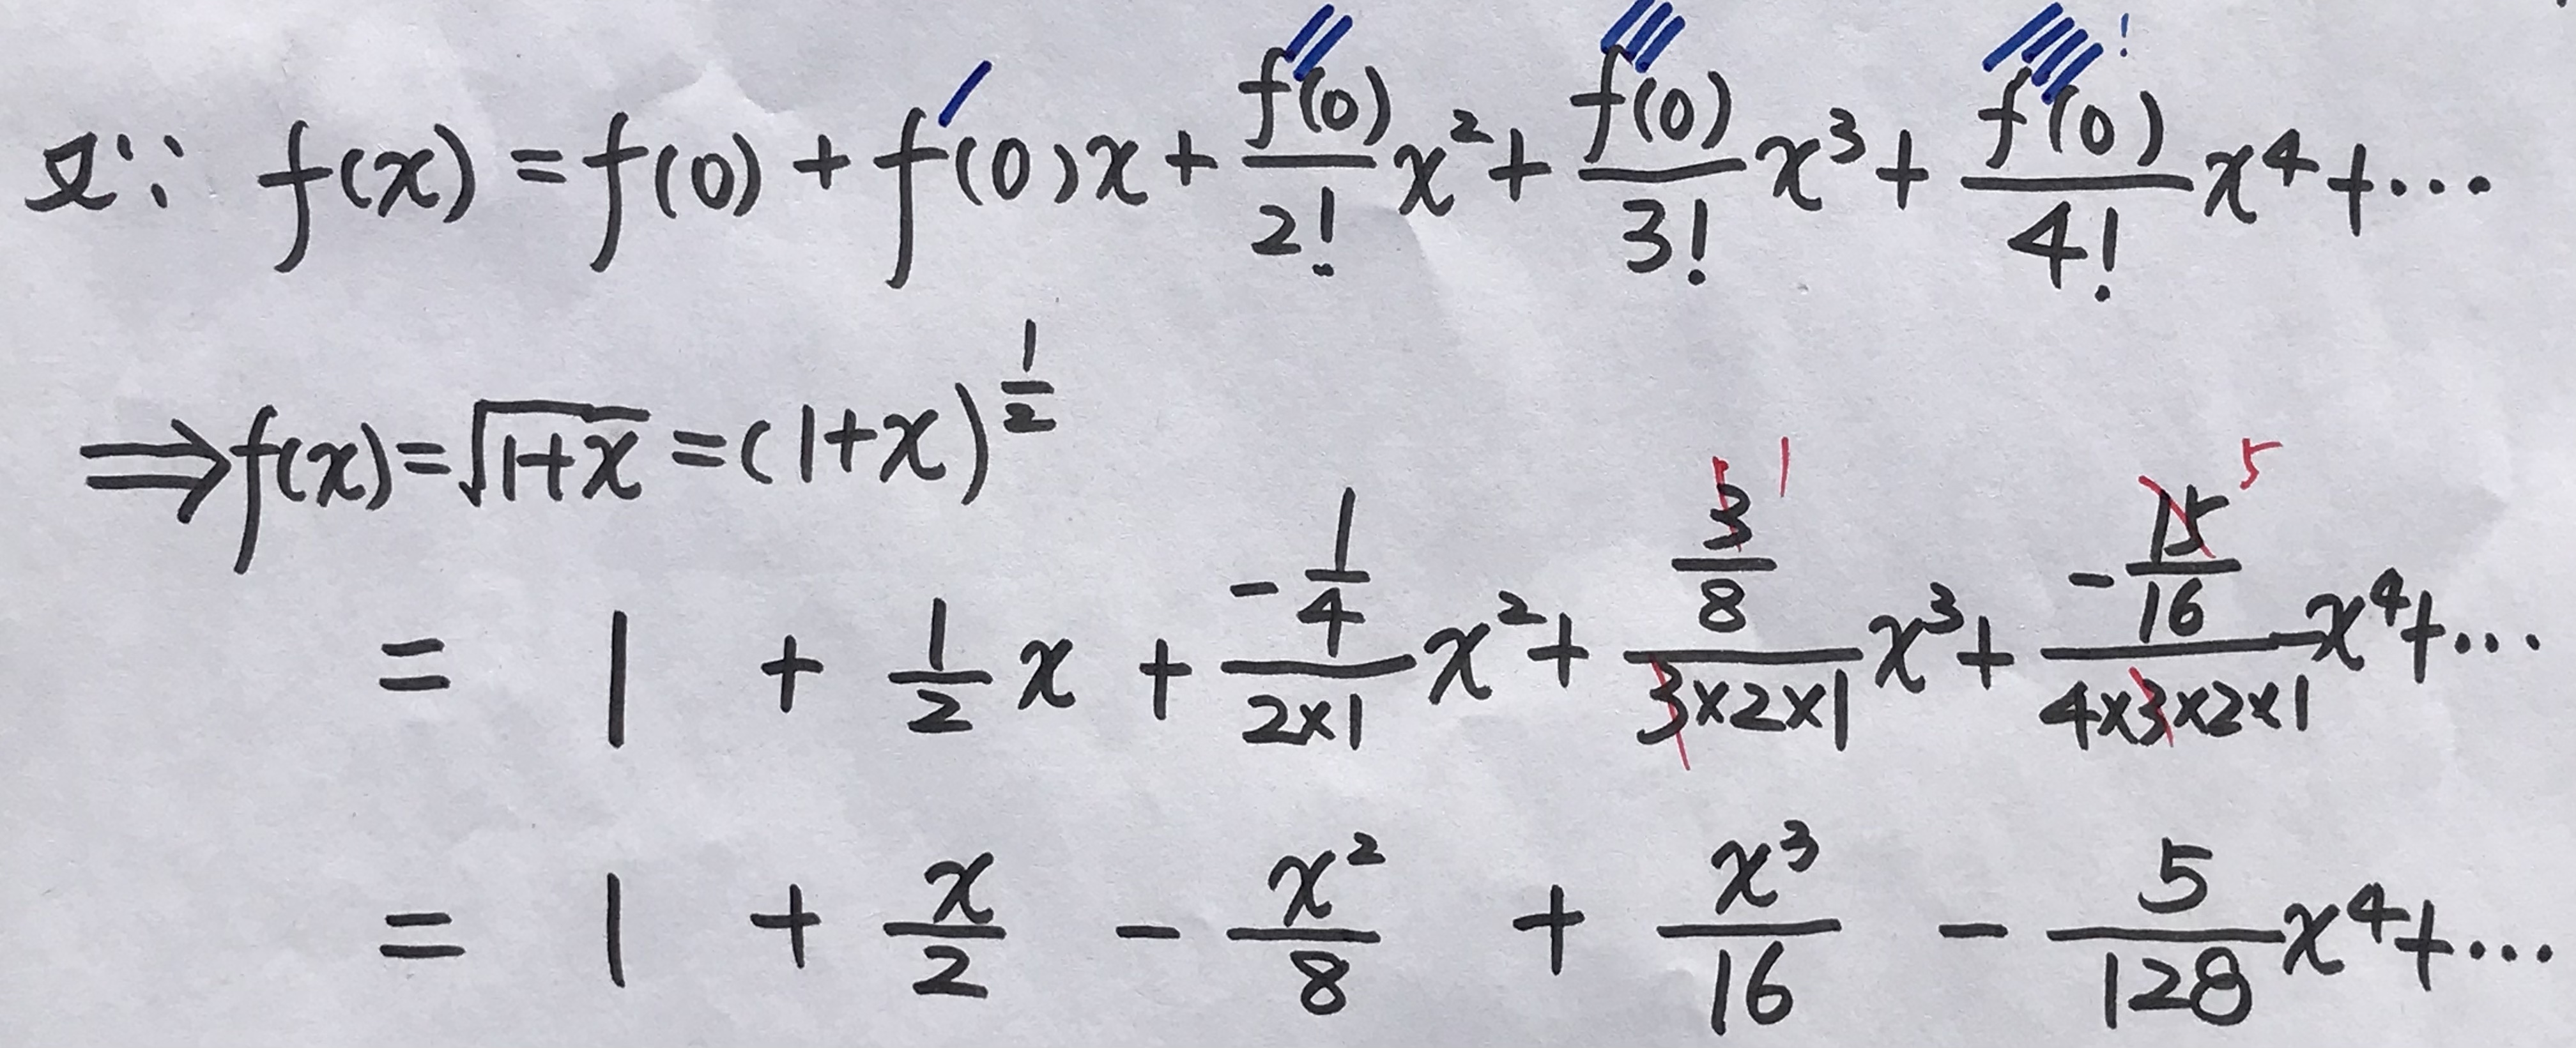 又∵ f(x) = f(0) + f′(0)x + f″(0)/2! x² + f‴(0)/3! x³ + f⁗(0)/4! x⁴ + ⋯
⇒ f(x) = √(1+x) = (1+x)^(1/2)
= 1 + 1/2 x + (-1/4)/(2×1) x² + (3/8)/(3×2×1) x³ + (-15/16)/(4×3×2×1) x⁴ + ⋯
1 5
= 1 + x/2 - x²/8 + x³/16 - 5/128 x⁴ + ⋯